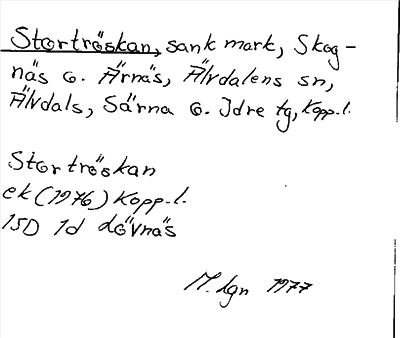 Stortröskan, sank mark, Skog-
näs o. Ärnäs, Älvdalens sn,
Älvdals, Särna o. Idre tg, Kopp. l.
Stortröskan
ek (1976) Kopp. l.
15D 1d Lövnäs
M. Lgn 1977